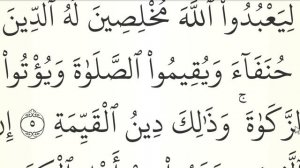 لِيَعْبُدُوا۟ ٱللَّهَ مُخْلِصِينَ لَهُ ٱلدِّينَ
حُنَفَآءَ وَيُقِيمُوا۟ ٱلصَّلَوٰةَ وَيُؤْتُوا۟
ٱلزَّكَوٰةَ ۚ وَذَٰلِكَ دِينُ ٱلْقَيِّمَةِ ۝٥ إِنَّ